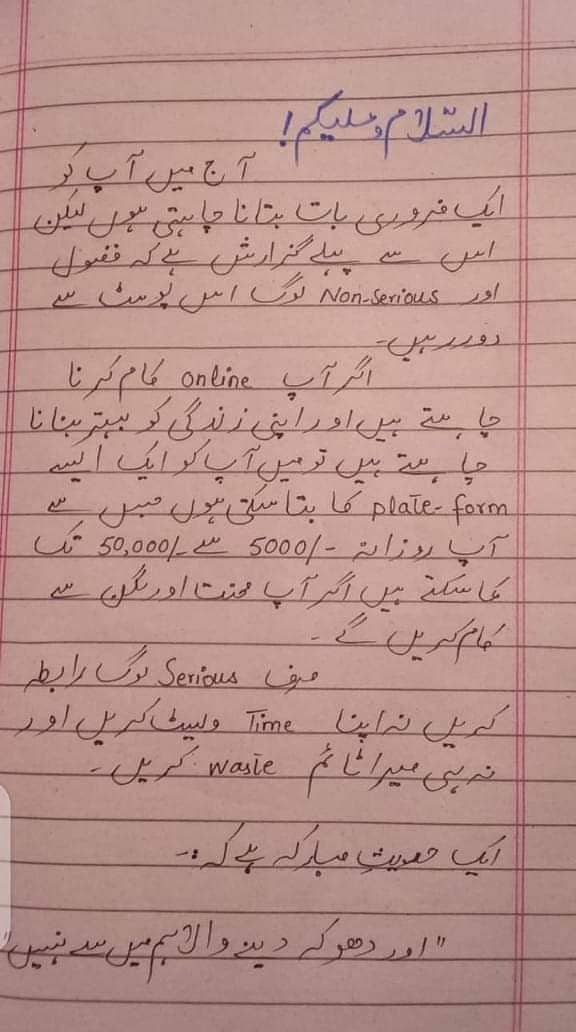 السّلام وعلیکم!
آج میں آپ کو
ایک ضروری بات بتانا چاہتی ہوں لیکن
اس سے پہلے گزارش ہے کہ فضول
اور Non-serious لوگ اس پوسٹ سے
دور رہیں۔
اگر آپ online کام کرنا
چاہتے ہیں اور اپنی زندگی کو بہتر بنانا
چاہتے ہیں تو میں آپ کو ایک ایسے
plate-form کا بتا سکتی ہوں جس سے
آپ روزانہ 5000/- سے 50,000/- تک
کما سکتے ہیں اگر آپ محنت اور لگن سے
کام کریں گے۔
صرف Serious لوگ رابطہ
کریں نہ اپنا Time ویسٹ کریں اور
نہ ہی میرا ٹائم waste کریں۔
ایک حدیثِ مبارکہ ہے کہ:۔
"اور دھوکہ دینے والا ہم میں سے نہیں"